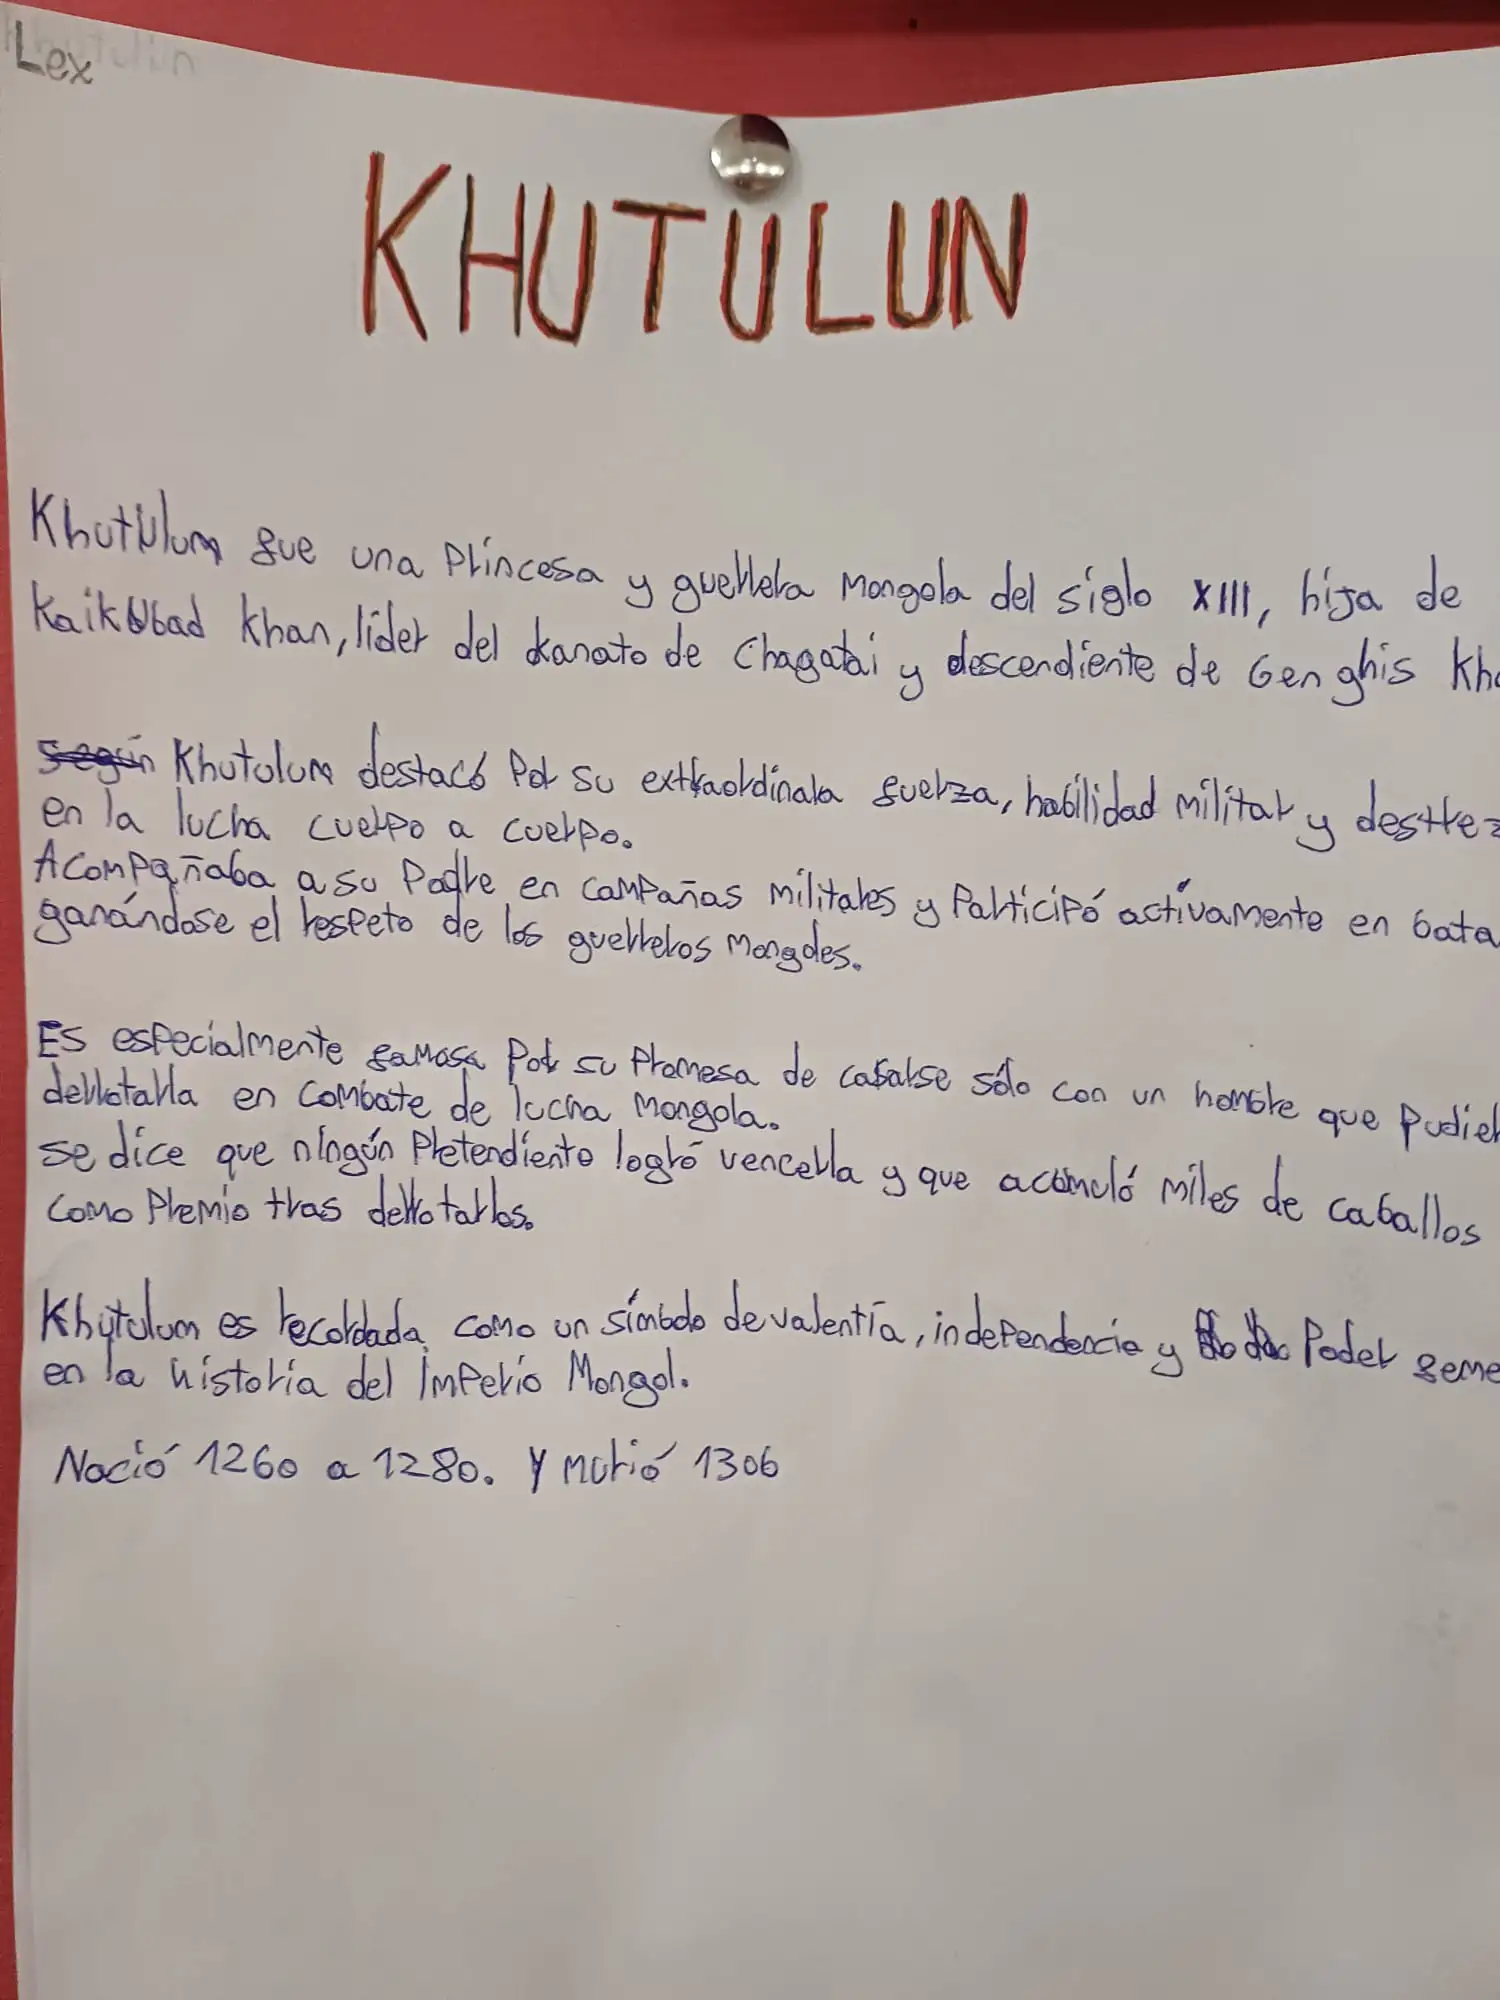 Lex
KHUTULUN
Khutulum fue una Princesa y guerrera Mongola del siglo XIII, hija de
Kaikubad Khan, líder del kanato de Chagatai y descendiente de Genghis Kha
según Khutulum destacó Por su extraordinara fuerza, habilidad militar y destrez
en la lucha cuerpo a cuerpo.
Acompañaba a su Padre en campañas militares y Participó activamente en bata
ganándose el respeto de los guerreros Mongoles.
Es especialmente famosa Por su Promesa de casarse sólo con un hombre que Pudier
derrotarla en combate de lucha Mongola.
se dice que ningún Pretendiente logró vencerla y que acumuló miles de caballos
como Premio tras derrotarlos.
Khutulum es recordada como un símbolo de valentía, independencia y Poder feme
en la historia del Imperio Mongol.
Nació 1260 a 1280. Y murió 1306